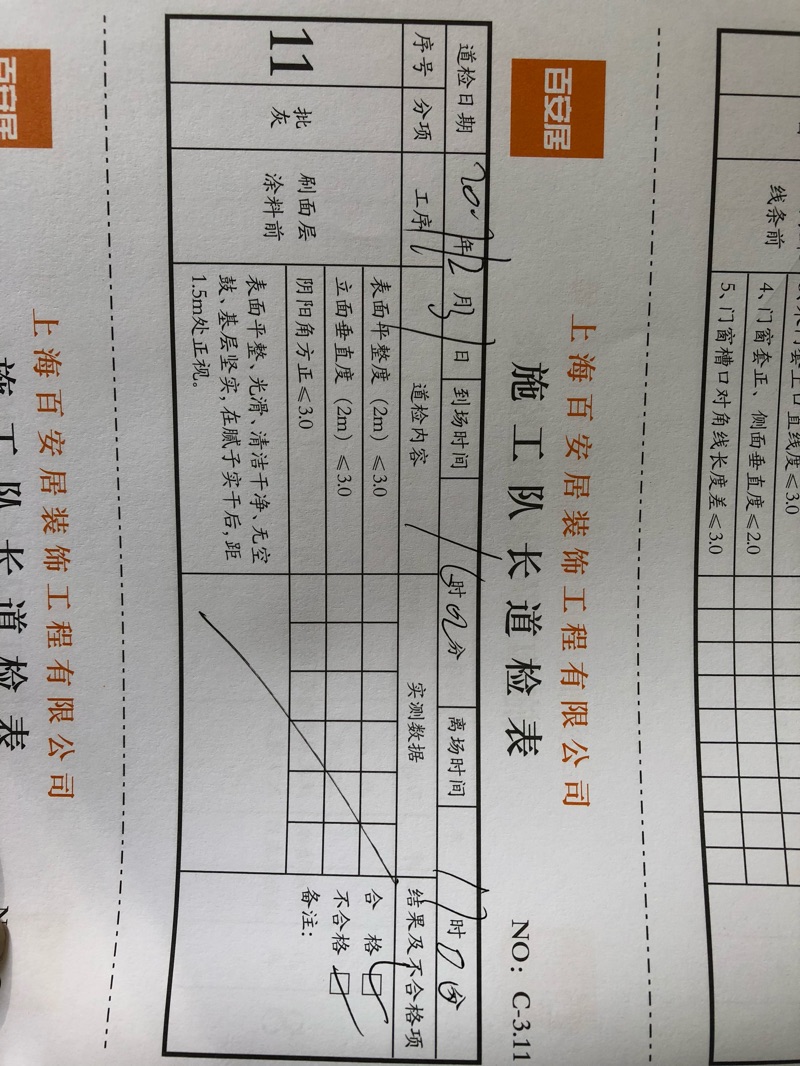 线条前
直线度≤3.0
4、门窗套正、侧面垂直度≤2.0
5、门窗槽口对角线长度差≤3.0
百安居
上海百安居装饰工程有限公司
施工队长道检表
NO: C-3.11
道检日期 年12月31日 到场时间 时 分 离场时间 17时 分
序号 分项 工序 道检内容 实测数据 结果及不合格项
11 批灰 刷面层涂料前
表面平整度（2m）≤3.0
立面垂直度（2m）≤3.0
阴阳角方正≤3.0
表面平整、光滑、清洁干净、无空
鼓、基层坚实，在腻子实干后，距
1.5m处正视。
合 格
不合格
备注：
百安居
上海百安居装饰工程有限公司
施工队长道检表